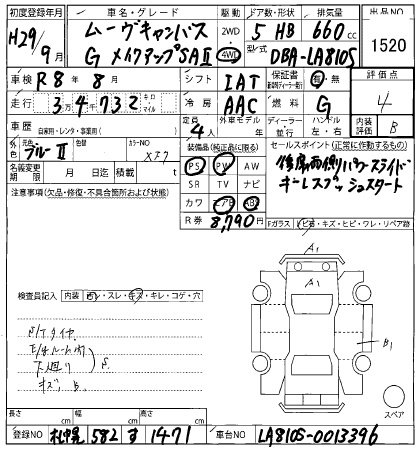 初度登録年月 車名・グレード 駆動 ドア数・形状 排気量 出品NO
H29/9月 ムーヴキャンバス 2WD・4WD 5 HB 660 cc 1520
G メイクアップSAⅡ 型式 DBA-LA810S
車検 R8年8月 シフト IAT 保証書 有・無 評価点
走行 3万4千732 キロ・マイル 冷房 AAC 燃料 G 4
車歴 自家用・レンタ・事業用( ) 定員 4人 外車モデル 年 ディーラー・並行 ハンドル 左・右 内装評価 B
外色 元色 ブルーⅡ 色替 カラーNO 装備品(純正品に限る) セールスポイント(正常に作動するもの)
名義変更期限 月 日迄 積載 t PS PW AW 後席両側パワースライド
注意事項(欠品・修復・不具合箇所およびその状態) SR TV ナビ キーレスプッシュスタート
カワ エアB ABS
R券 8,790円 Fガラス トビ石・キズ・ヒビ・ワレ・リペア跡
A1
A1
検査員記入 内装 スレ・キズ・キレ・コゲ・穴
B1
下廻り
キズ、B
スペア
長さ cm 幅 cm 高さ cm
登録NO 札幌 582 す 1471 車台NO LA810S-0013396